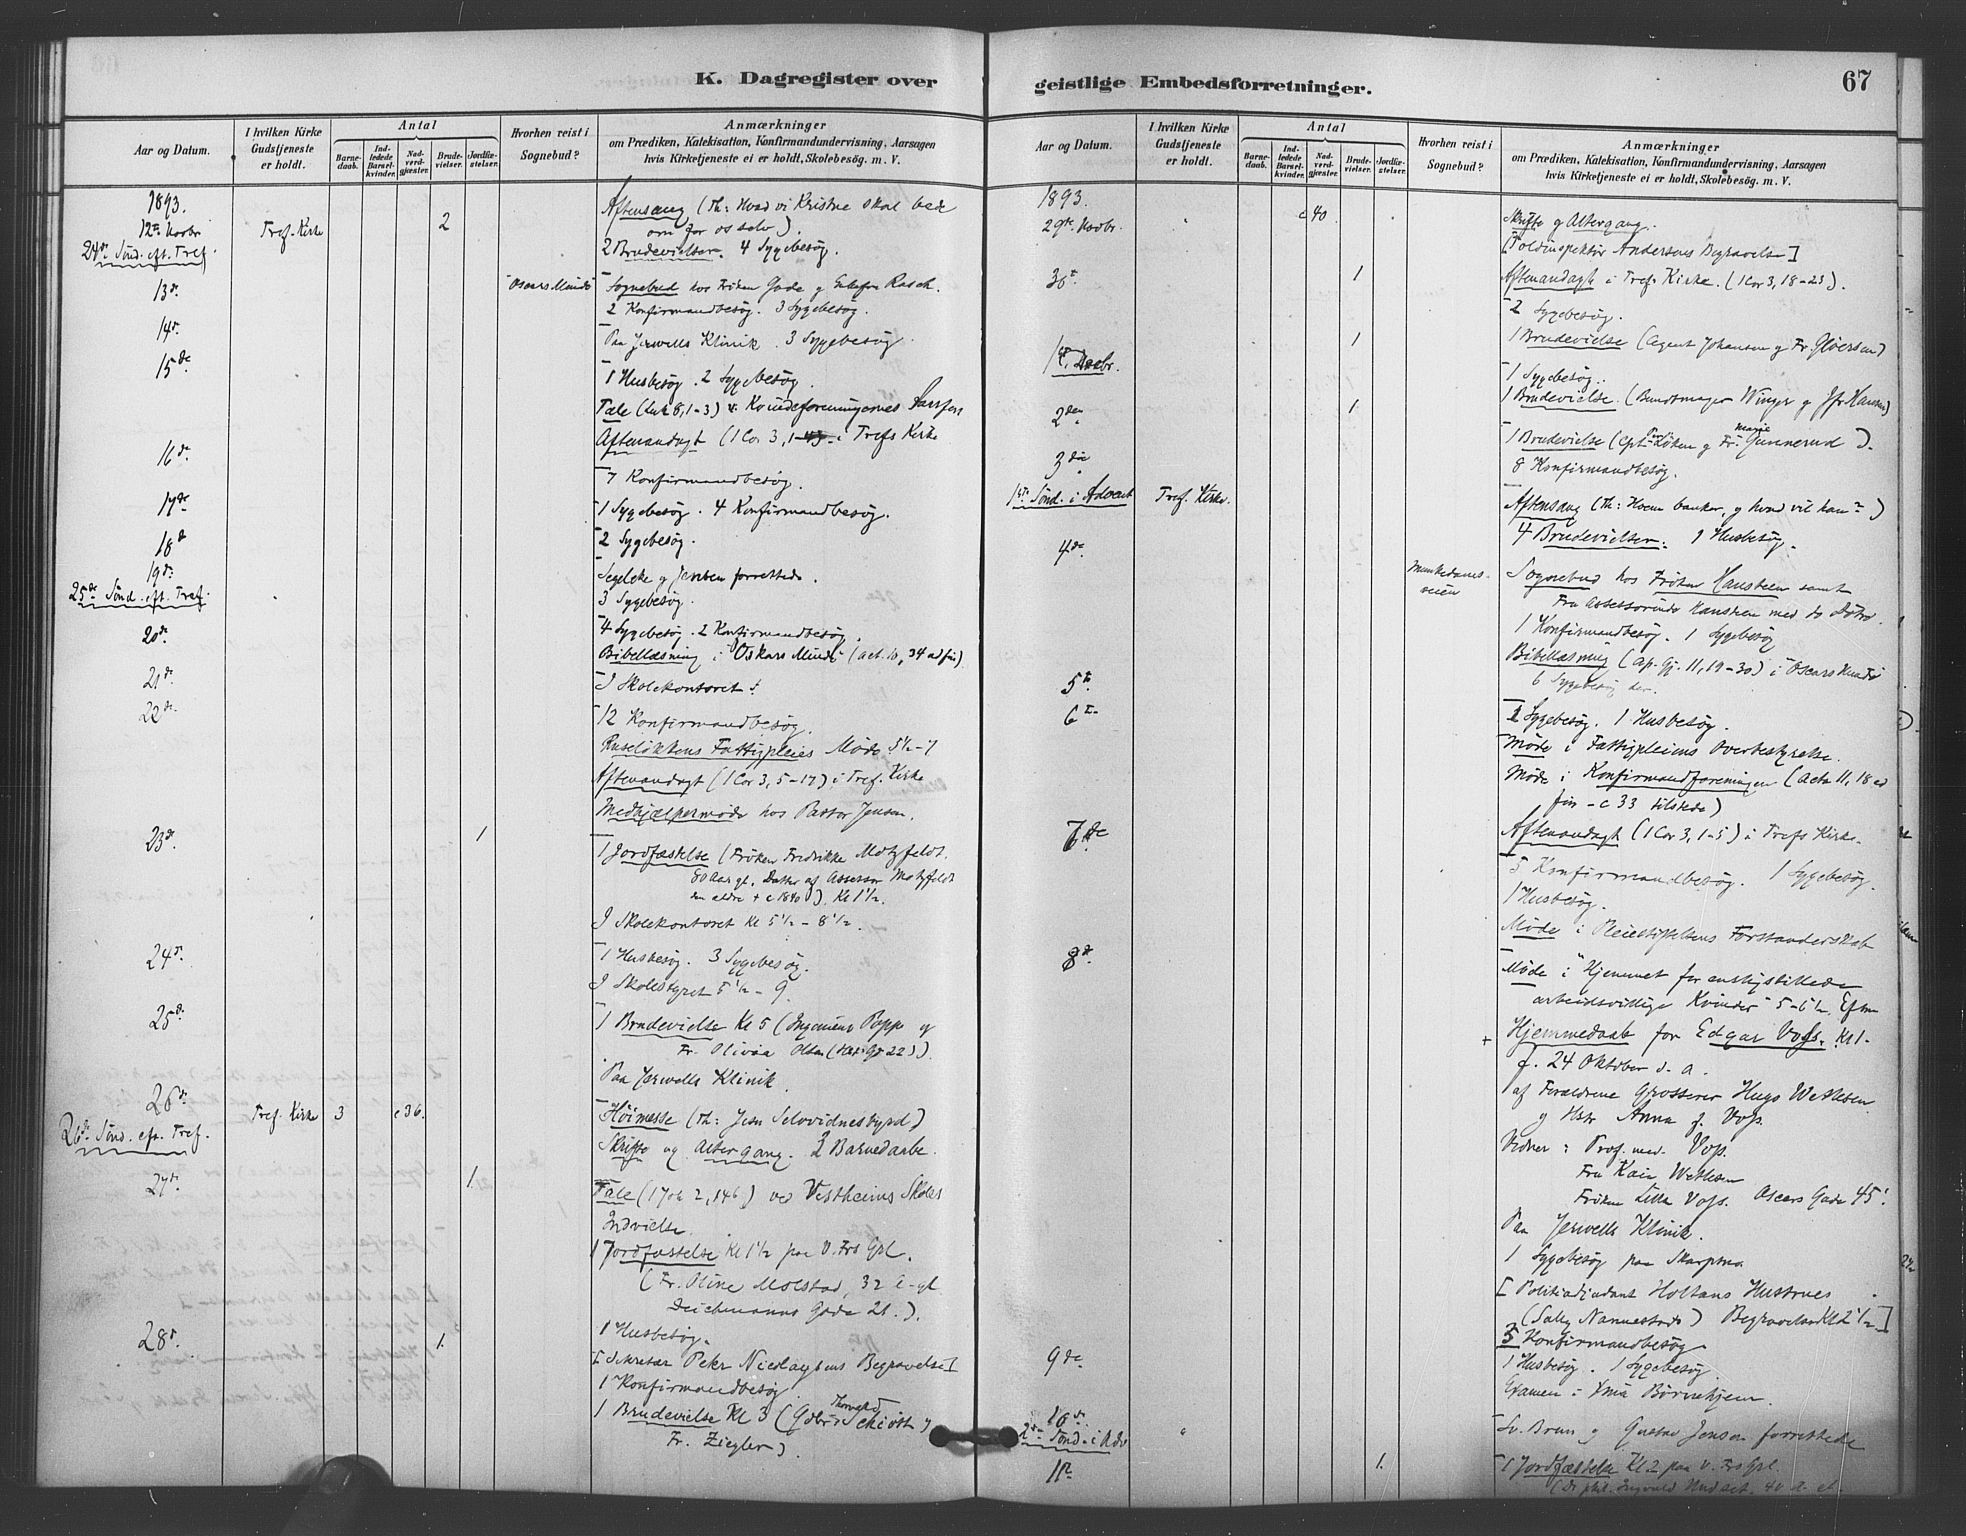 K. Dagregister over
Aar og Datum.
I hvilken Kirke Gudstjeneste er holdt.
Antal
Barne-daab.
Ind-ledede Barsel-kvinder.
Nad-verd-gjæster.
Brude-vielser.
Jordfæ-stelser.
Hvorhen reist i Sognebud?
Anmærkninger
om Prædiken, Katekisation, Konfirmandundervisning, Aarsagen
hvis Kirketjeneste ei er holdt, Skolebesøg. m. V.
1893.
12te Novbr Tref. Kirke 2 Aftensang (Th: Hvad vi Kristne skal bede
om for os selv).
24de Sønd. eft. Tref. 2 Brudevielser. 4 Sygebesøg.
13de Oscars Minde Sognebud hos Frøken Gade g Rasch.
2 Konfirmandbesøg. 3 Sygebesøg.
14de Paa Jervells Klinik. 3 Sygebesøg.
15de 1 Husbesøg. 2 Sygebesøg.
Tale (Luk 8, 1-3) v. Kvindeforeningernes
Aftenandagt (1 Cor 3, i Trefs Kirke
16de 7 Konfirmandbesøg.
17de 1 Sygebesøg. 4 Konfirmandbesøg.
18de 2 Sygebesøg.
19de Segelcke g Jensen forrettede.
25de Sønd. eft. Tref. 3 Sygebesøg.
20de 4 Sygebesøg. 2 Konfirmandbesøg.
Bibellæsning i Oskars Minde (Act. 10, 34 ad fin)
21de I Skolekontoret.
22de 12 Konfirmandbesøg.
Ruseløkkens Fattigpleies Møde 5½-7
Aftenandagt (1 Cor 3, 5-17) i Tref. Kirke
Medhjælpermøde hos Pastor Jensen.
23de 1 1 Jordfæstelse (Frøken Fredrikke Motzfeldt.
80 Aar gl. Datter af Assessor Motzfeldt
den ældre + c 1840). Kl 1½.
I Skolekontoret Kl 5½ - 8½.
24de 1 Husbesøg. 3 Sygebesøg.
I Skolestyret 5½ - 9.
25de 1 Brudevielse Kl 5 (Ingeniør Popp og
Fr. Olivia Olsen
Paa Jervells Klinik.
26de Tref. Kirke 3 c 36. Høimesse (Th: Jesu Selvvidnesbyrd)
26de Sønd. eft. Tref. Skrifte og Altergang. Barnedaabe.
27de 1. Tale (1 Joh 2, ved Vestheims Skoles
Indvielse.
1 Jordfæstelse Kl 1½ paa V. Frs Gpl.
(Fr. Oline Molstad, 32 gl
Deichmanns Gade 21.).
28de 1. 1 Husbesøg.
[Sekretær Peter Nicolaysens Begravelse]
1 Konfirmandbesøg.
1 Brudevielse Kl 3 ( Thorvald Schiøtt g
Fr. Ziegler)
geistlige Embedsforretninger.
67
Aar og Datum.
I hvilken Kirke Gudstjeneste er holdt.
Antal
Barne-daab.
Ind-ledede Barsel-kvinder.
Nad-verd-gjæster.
Brude-vielser.
Jordfæ-stelser.
Hvorhen reist i Sognebud?
Anmærkninger
om Prædiken, Katekisation, Konfirmandundervisning, Aarsagen
hvis Kirketjeneste ei er holdt, Skolebesøg. m. V.
1893.
29de Novbr. c 40 Skrifte g Altergang.
[Toldinspektør Andersens Begravelse]
30te 1 Aftenandagt i Trefs Kirke. (1 Cor 3, 18-23).
2 Sygebesøg.
1 1 Brudevielse (Agent Johansen g Fr. Gløersen)
1ste Decbr. 1 Sygebesøg.
2den 1. 1 Brudevielse. (Bundtmager Winger g Jfr Hansen)
1 Brudevielse (Cpt. Løken g Fr. Marie Gunnerud).
3die 8 Konfirmandbesøg.
1ste Sønd. i Advent Tref. Kirke. Aftensang (Th: Hvem banker, g hvad vil han?)
4 Brudevielser. 1 Husbesøg.
4de Munkedams-veien Sognebud hos Frøken Hansteen samt
Fru Assessorinde Hansteen med to Døtre.
1 Konfirmandbesøg. 1 Sygebesøg
Bibellæsning (Ap. Gj. 11, 19-30) i Oscars Minde
6 Sygebesøg der.
5te
6te Sygebesøg. 1 Husbesøg.
Møde i Fattigpleiens Overbestyrelse.
Møde i Konfirmandforeningen (Acta 11, 18 ad
fin - c 33 tilstede)
7de Aftenandagt (1 Cor 3, 1-5) i Trefs Kirke.
5 Konfirmandbesøg. 1 Sygebesøg.
1 Husbesøg.
Møde i Pleiestiftelsens Forstanderskab
8de Møde i "Hjemmet for ensligstillede
arbeidsvillige Kvinder" 5-6½ Eftm
+ Hjemmedaab for Edgar Vofs. Kl 1.
f. 24 Oktober d. a.
af Forældrene Grosserer Hugo Wethlesen
g Hstr Anna f. Vofs.
Vidner: Prof. med. Vofs.
Fru Kaia Wethlesen
Frøken Lilla Vofs. Oscars Gade 45.
Paa Jervells Klinik.
1 Sygebesøg paa Skarpsno.
[Politiadjudant Holtans Hustrues
(Sally Nannestads) Begravelse Kl 2½.]
5 Konfirmandbesøg
9de 1 Husbesøg. 1 Sygebesøg.
Examen i Børnehjem.
10de Sv. Brun g Gustav Jensen forrettede
2den Sønd. i Adv
11te 1. 1 Jordfæstelse Kl 2 paa V. Frs Gpl.
(Dr phil. Ingvald Undset. 40